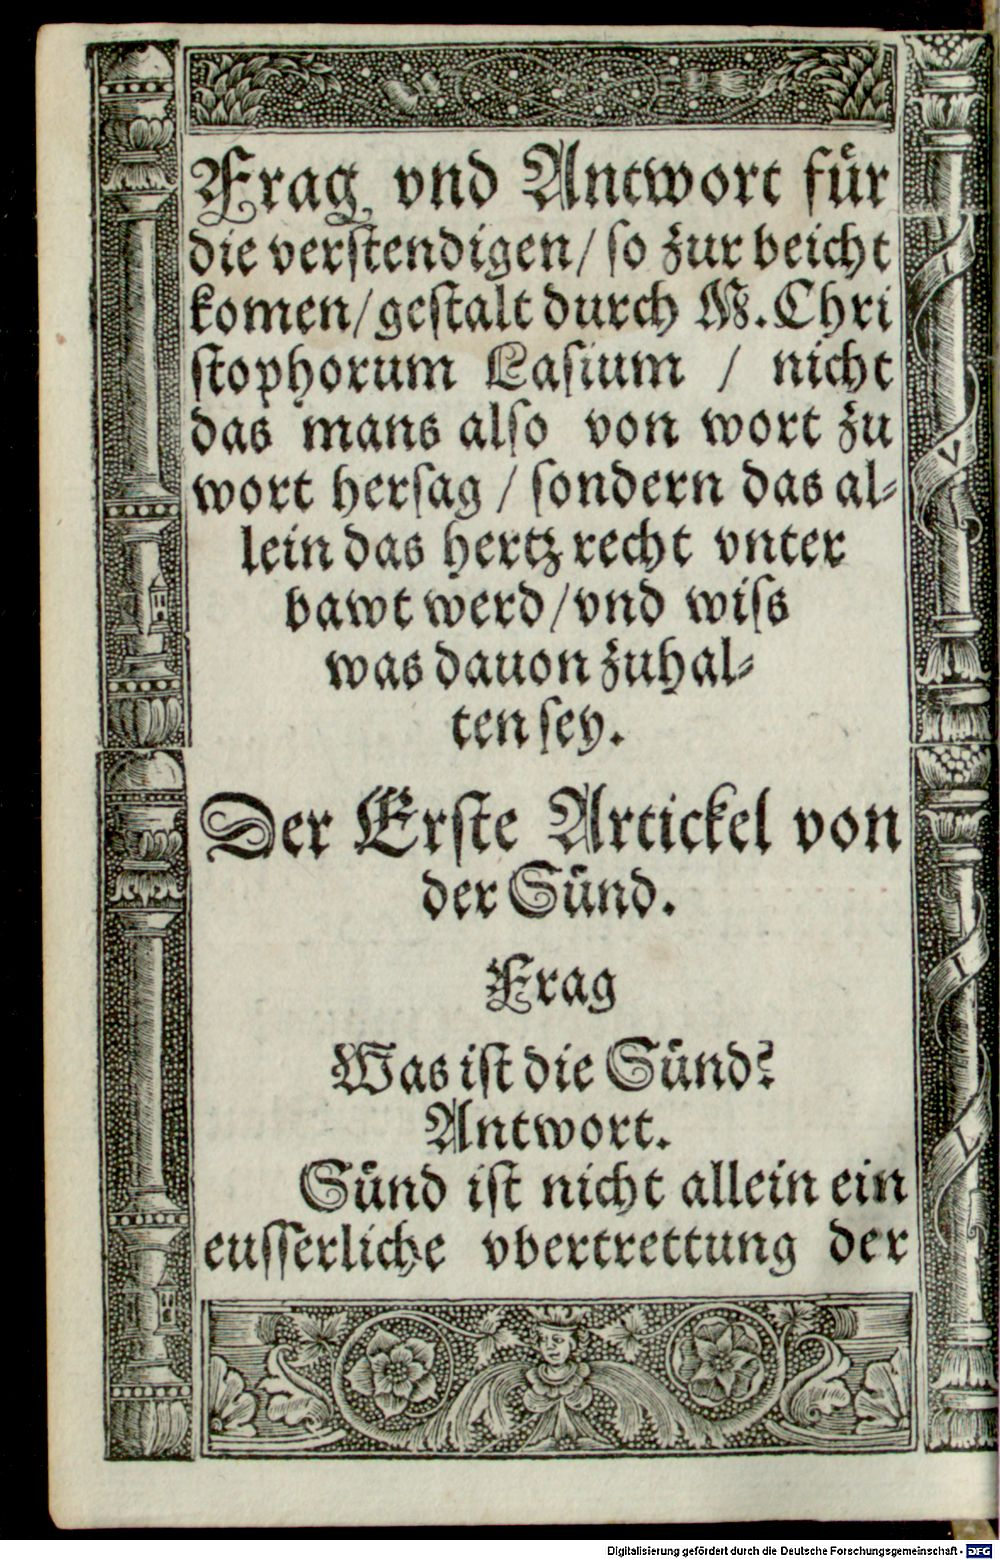 Frag vnd Antwort für
die verstendigen / so zur beicht
komen / gestalt durch M. Chri
stophorum Lasium / nicht
das mans also von wort zu
wort hersag / sondern das al-
lein das hertz recht vnter
bawt werd / vnd wiss
was dauon zuhal-
ten sey.
Der Erste Artickel von
der Sünd.
Frag
Was ist die Sünd?
Antwort.
Sünd ist nicht allein ein
eusserliche vbertrettung der
Digitalisierung gefördert durch die Deutsche Forschungsgemeinschaft - DFG